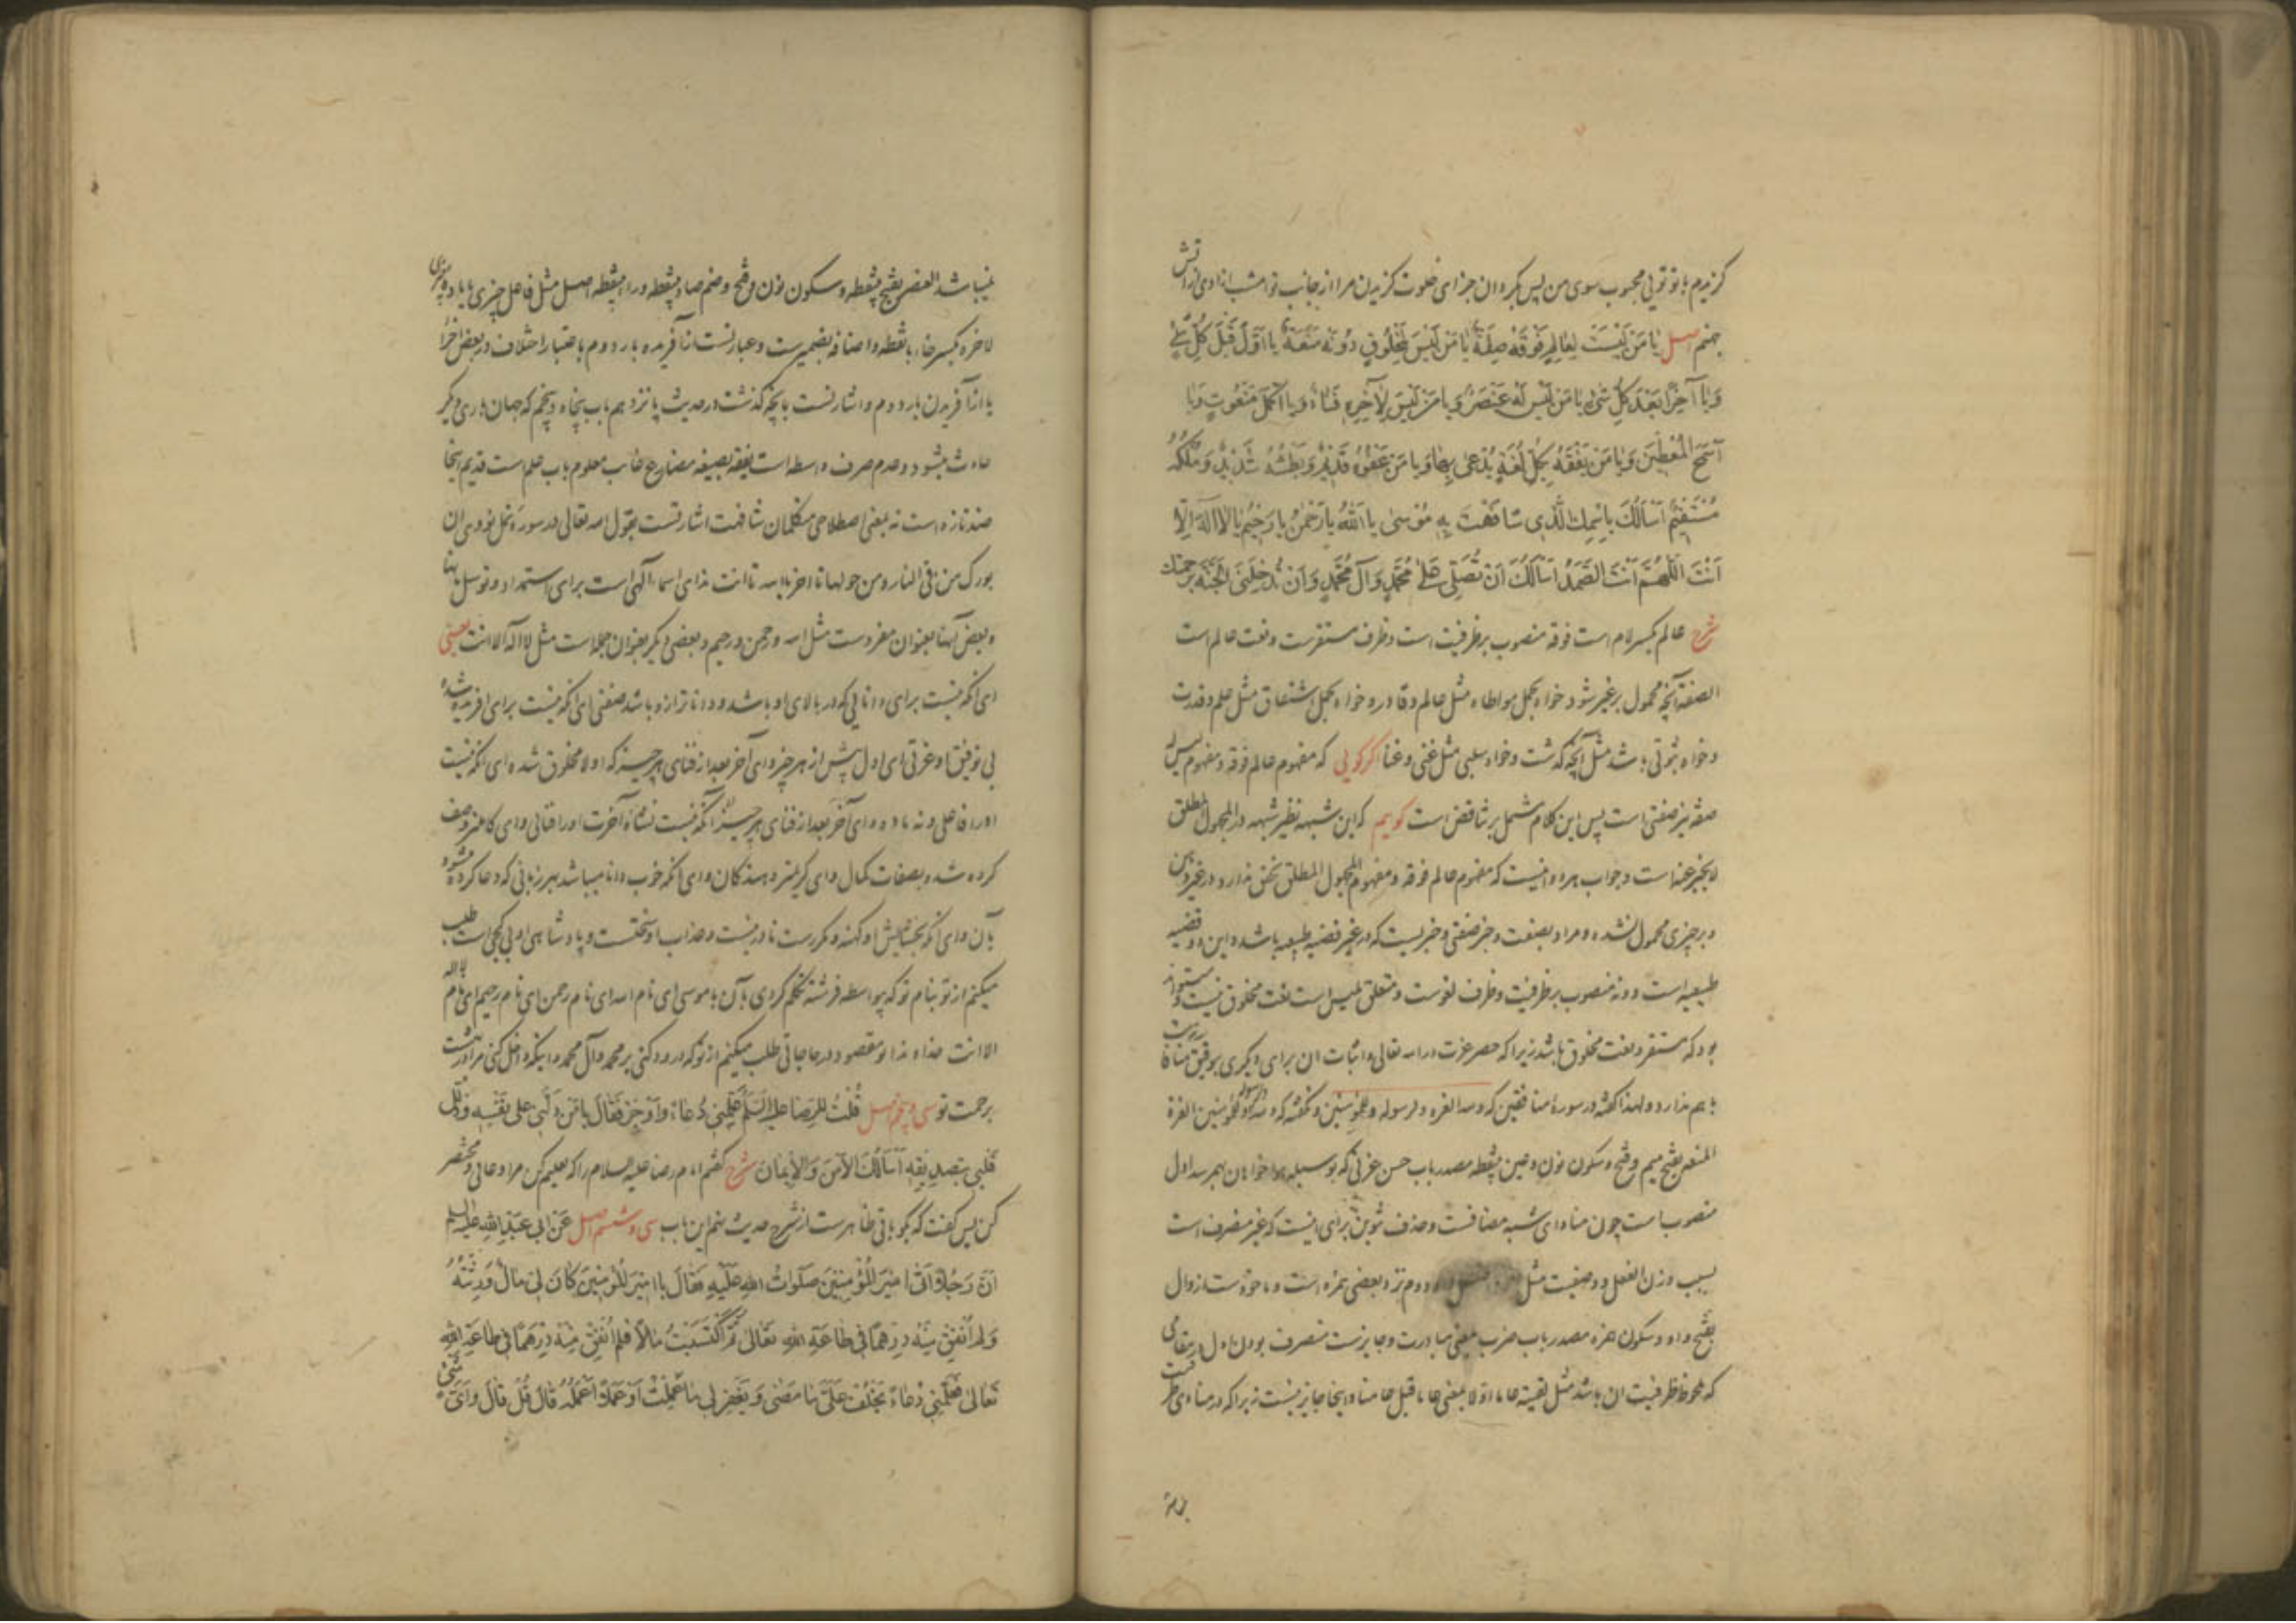 گزیدم با تو توئی محبوب سوی من پس بگردان جزای خلوت گزیدن مرا از جانب تو امشب آزادی از آتش
جهنم اصل یَا مَن لَیْسَتْ لِعَالِمٍ فَوْقَهُ صِفَةٌ یَا مَنْ لَیْسَ لِمَخْلُوقٍ دُونَهُ مَنَعَةٌ یَا أَوَّلَ قَبْلَ كُلِّ شَیْءٍ
وَیَا آخِرًا بَعْدَ كُلِّ شَیْءٍ یَا مَنْ لَیْسَ لَهُ عُنْصُرٌ وَیَا مَنْ لَیْسَ لِآخِرِهِ فَنَاءٌ وَیَا أَكْمَلَ مَنْعُوتٍ وَیَا
أَسْمَحَ الْمُعْطِینَ وَیَا مَنْ یَفْقَهُ بِكُلِّ لُغَةٍ یُدْعَى بِهَا وَیَا مَنْ عَفْوُهُ قَدِیمٌ وَبَطْشُهُ شَدِیدٌ وَمُلْكُهُ
مُسْتَقِیمٌ أَسْأَلُكَ بِاسْمِكَ الَّذِی شَافَهْتَ بِهِ مُوسَى یَا اَللهُ یَا رَحْمٰنُ یَا رَحِیمُ یَا لَا اِلٰهَ اِلَّا
أَنْتَ اَللّٰهُمَّ أَنْتَ الصَّمَدُ أَسْأَلُكَ أَنْ تُصَلِّیَ عَلٰى مُحَمَّدٍ وَآلِ مُحَمَّدٍ وَأَنْ تُدْخِلَنِی الْجَنَّةَ بِرَحْمَتِكَ
شرح عالم بکسر لام است فوقه منصوب بر ظرفیت است و ظرف مستقرست و نعت عالم است
الصفة آنچه محمول بر غیر شود خواه بحمل مواطاه مثل عالم و قادر و خواه بحمل اشتقاق مثل علم و قدرت
و خواه ثبوتی باشد مثل آنچه گذشت و خواه سلبی مثل غنی و غنا اگر گویی که مفهوم عالم فوقه و مفهوم لیس له
صفة نیز صفتی است پس این کلام مشتمل بر تناقض است گویم که این شبهه نظیر شبهه در المجهول المطلق
لا یخبر عنه است و جواب هر دو اینست که مفهوم عالم فوقه و مفهوم المجهول المطلق تحقق ندارد در غیر ذهن
و بر چیزی محمول نشده و مراد بصفت و خبر صفتی و خبریست که در غیر قضیه طبیعیه باشد و این دو قضیه
طبیعیه است دونه منصوب بر ظرفیت و ظرف لغوست و متعلق بلیس است نعت مخلوق نیست و میتواند
بود که مستقر و نعت مخلوق باشد زیرا که حصر عزت در الله تعالی و اثبات ان برای دیگری بتوفیق منافات
با هم ندارد و لهذا گفته در سورهٔ منافقین که ولله العزة ولرسوله وللمؤمنین و نگفته که ولله ولرسوله وللمؤمنین العزة
المنعة بفتح میم و فتح و سکون نون و عین بینقطه مصدر باب حسن عزتی که بوسیلهٔ هواخواهان بهم رسد اول
منصوبست چون منادای شبه مضافست و حذف تنوین برای اینست که غیر منصرف است
بسبب وزن الفعل و وصفیت مثل دوم نزد بعضی همزه است و ماخوذست از وال
بفتح واو و سکون همزه مصدر باب ضرب بمعنی مبادرت و جایزست منصرف بودن اول در مقامی
که ملحوظ ظرفیت ان باشد مثل لقیته عاما اولا بمعنی عاما قبل عامنا و اینجا جایز نیست زیرا که در منادی ظرفیت
نمیباشد العنصر بضم عین بینقطه و سکون نون و فتح و ضم صاد بینقطه و راء بینقطه اصل مثل فاعل چیزی یا ماده چیزی
لآخره بکسر خاء بانقطه و اضافه بضمیرست و عبارتست از آفریده بار دوم باعتبار اختلاف در بعض اجزا
یا از آفریدن بار دوم و اشارتست بآنچه گذشت در حدیث پانزدهم باب پنجاه و پنجم که جهان باری دیگر
حادث میشود و عدم صرف واسطه است یفقه بصیغه مضارع غایب معلوم باب علم است قدیم اینجا
ضد تازه است نه بمعنی اصطلاحی متکلمان شافهت اشارتست بقول الله تعالی در سورهٔ نمل نودی ان
بورک من فی النار و من حولها تا آخر یا الله تا انت ندای اسماء الهی است برای استمداد و توسل بآنها
و بعض آنها بعنوان مفردست مثل الله و رحمن و رحیم و بعضی دیگر بعنوان جمله است مثل لا اله الا انت یعنی
ای آنکه نیست برای دانایی که در بالای او باشد و داناتر از او باشد صفتی ای آنکه نیست برای آفریده شدهٔ
بی توفیق او عزتی ای اول پیش از هر چیز و ای آخر بعد از فنای هر چیز که اولا مخلوق شده ای آنکه نیست
او را فاعلی و نه ماده و ای آخر بعد از فنای هر چیز ای آنکه نیست نشأهٔ آخرت او را فنائی و ای کاملتر وصف
کرده شده بصفات کمال و ای کریمتر دهندگان و ای آنکه خوب دانا میباشد بهر زبانی که دعا کرده میشود
بآن و ای آنکه بخشایش او کهنه و مکررست نادر نیست و عذاب او سختست و پادشاهی او بی کجی است طلب
میکنم از تو بنام تو که بیواسطه فرشته تکلم کردی بآن با موسی ای نام الله ای نام رحمن ای نام رحیم ای نام لا اله
الا انت خداوندا تو مقصود در حاجاتی طلب میکنم از تو که درود کنی بر محمد و آل محمد و اینکه داخل کنی مرا در بهشت
برحمت تو سی و پنجم اصل قُلْتُ لِلرِّضَا عَلَیْهِ السَّلَمُ عَلِّمْنِی دُعَاءً وَأَوْجِزْ فَقَالَ یَا مَنْ دَلَّنِی عَلَى نَفْسِهِ وَذَلَّلَ
قَلْبِی بِتَصْدِیقِهِ أَسْأَلُكَ الْأَمْنَ وَالْإِیمَانَ شرح گفتم امام رضا علیه السلام را که تعلیم کن مرا دعائی و مختصر
کن پس گفت که بگو باقی ظاهرست از شرح حدیث سیم این باب سی و ششم اصل عَنْ أَبِی عَبْدِ اللهِ عَلَیْهِ السَّلَم
أَنَّ رَجُلًا أَتٰى أَمِیرَ الْمُؤْمِنِینَ صَلَوَاتُ اللهِ عَلَیْهِ فَقَالَ یَا أَمِیرَ الْمُؤْمِنِینَ كَانَ لِی مَالٌ وَرِثْتُهُ
وَلَمْ أُنْفِقْ مِنْهُ دِرْهَمًا فِی طَاعَةِ اللهِ تَعَالٰى ثُمَّ اكْتَسَبْتُ مَالًا فَلَمْ أُنْفِقْ مِنْهُ دِرْهَمًا فِی طَاعَةِ اللهِ
تَعَالٰى فَعَلِّمْنِی دُعَاءً یُخْلِفُ عَلَیَّ مَا مَضٰى وَیَغْفِرُ لِی مَا عَمِلْتُ أَوْ عَمَلًا أَعْمَلُهُ قَالَ قُلْ قَالَ وَأَیَّ شَیْءٍ